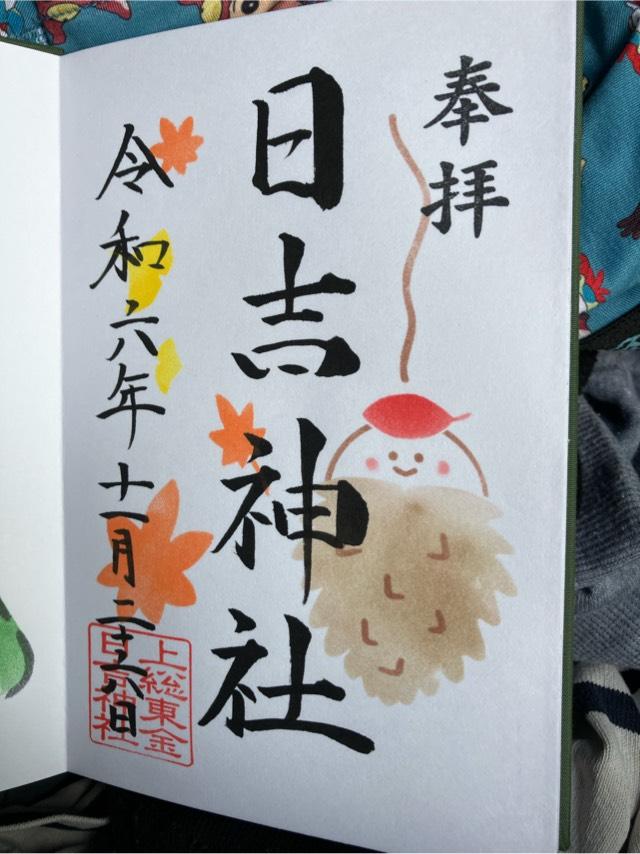 奉拝
日吉神社
令和六年十一月二十六日
上総東金
日吉神社